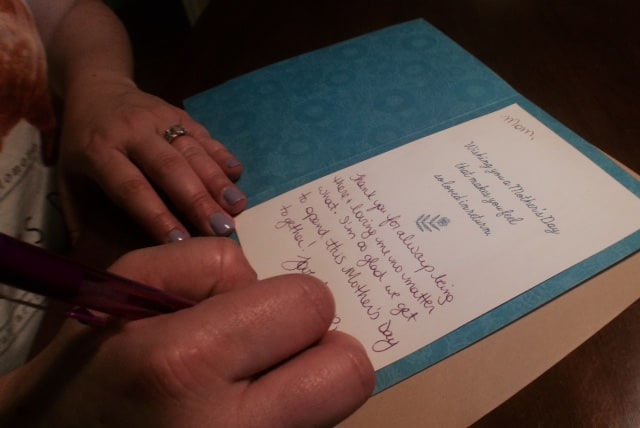 Mom,
Wishing you a Mother's Day
that makes you feel
so loved in return.
Thank you for always being
there & loving me no matter
what. I'm so glad we get
to spend this Mother's Day
together!